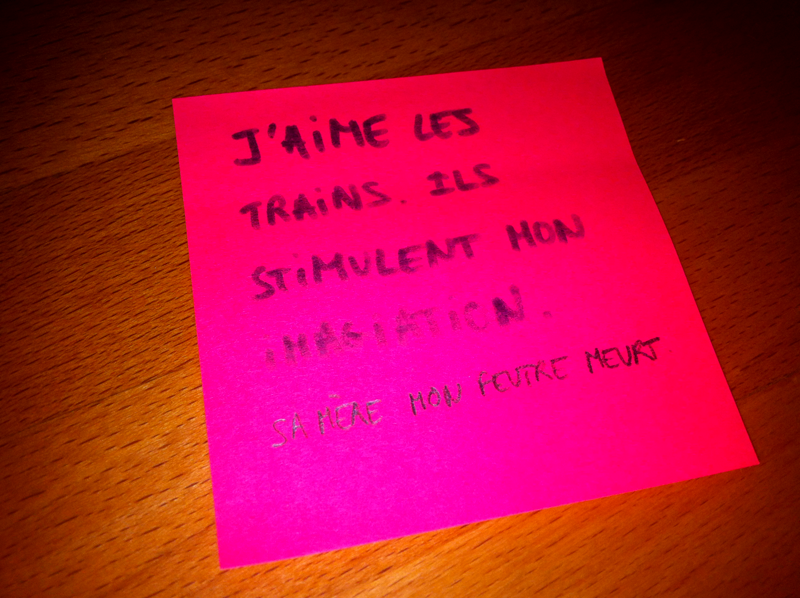 J'AiME LES
TRAiNS. ILS
STiMULENT MON
iMAGiATiON.
SA MÈRE MON FEUTRE MEURT